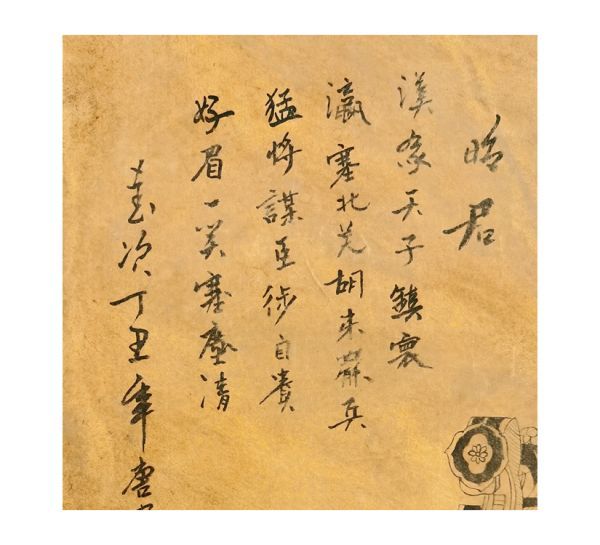 昭君
漢家天子鎮寰
瀛塞北羌胡未罷兵
猛將謀臣徒自貴
好眉一笑塞塵清
歲次丁丑年唐